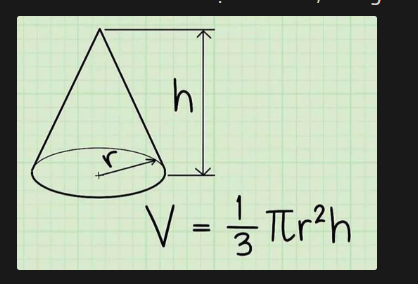 h
r
V = 1/3 πr²h